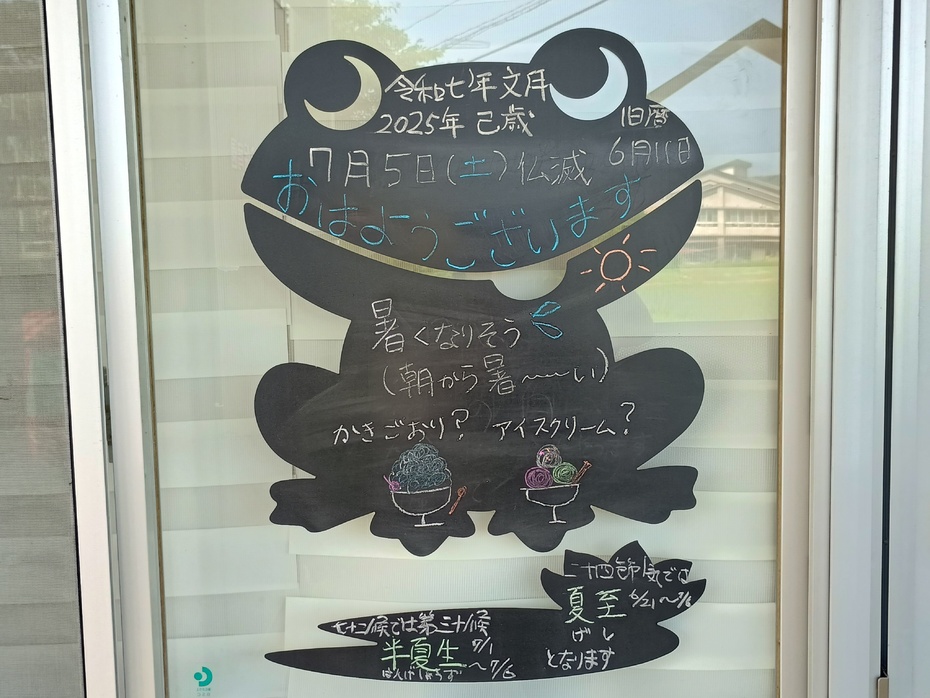 令和七年 文月
2025年 己歳
旧暦
6月11日
7月5日(土)仏滅
おはようございます
暑くなりそう
(朝から暑〜〜い)
かきごおり? アイスクリーム?
二十四節気では
夏至 6/21〜7/6
げし
となります
七十二候では第三十候
半夏生 7/1〜7/6
はんげしょうず